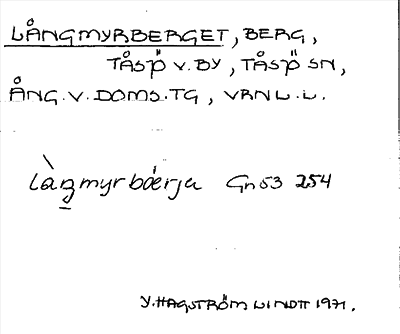 LÅNGMYRBERGET, BERG,
TÅSJÖ V. BY, TÅSJÖ SN,
ÅNG. V. DOMS. TG, VRNL. L.
Gn 53 254
Y. HAGSTRÖM LINDTT 1971.